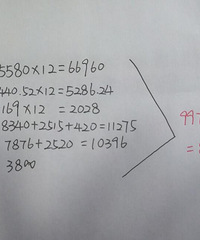 5580×12=66960
440.52×12=5286.24
169×12 =2028
8340+2515+420=11275
7876+2520=10396
3800
997
=